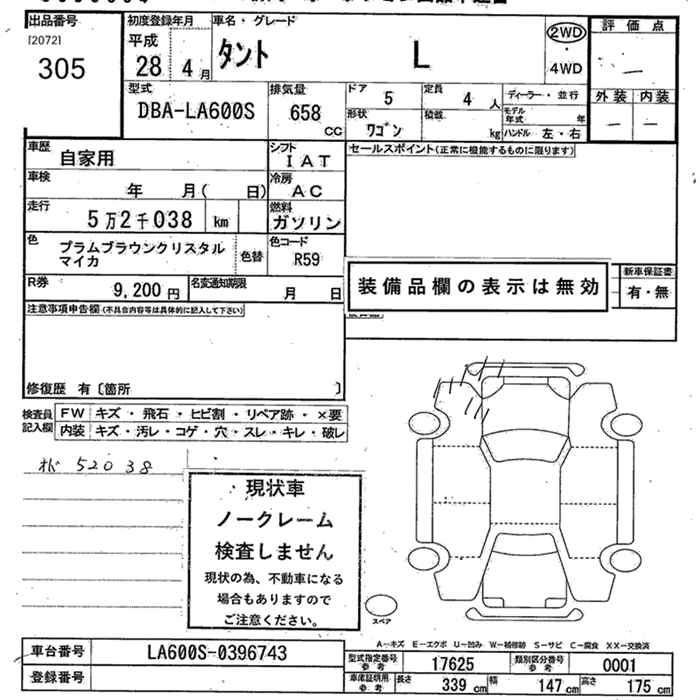 出品番号
[2072]
305
初度登録年月
平成
28 4 月
車名・グレード
タント L
2WD
・
4WD
評価点
―
外装 内装
― ―
型式
DBA-LA600S
排気量
658
CC
ドア
5
定員
4 人
形状
ワゴン
積載
kg
ディーラー・並行
モデル年式 年
ハンドル 左・右
車歴
自家用
シフト
IAT
セールスポイント(正常に機能するものに限ります)
車検
年 月( 日)
冷房
AC
走行
5万2千038 km
燃料
ガソリン
色
プラムブラウンクリスタル
マイカ
色替
色コード
R59
R券
9,200 円
名変通知期限
月 日
装備品欄の表示は無効
新車保証書
有・無
注意事項申告欄(不具合内容等は具体的に記入して下さい)
修復歴 有〔箇所 〕
検査員
記入欄
FW キズ・飛石・ヒビ割・リペア跡・×要
内装 キズ・汚レ・コゲ・穴・スレ・キレ・破レ
52038
現状車
ノークレーム
検査しません
現状の為、不動車になる
場合もありますので
ご注意ください。
スペア
A―キズ E―エクボ U―凹み W―補修跡 S―サビ C―腐食 XX―交換済
車台番号
LA600S-0396743
登録番号
型式指定番号
参考
17625
類別区分番号
参考
0001
車庫証明用
参考
長さ 339 cm 幅 147 cm 高さ 175 cm